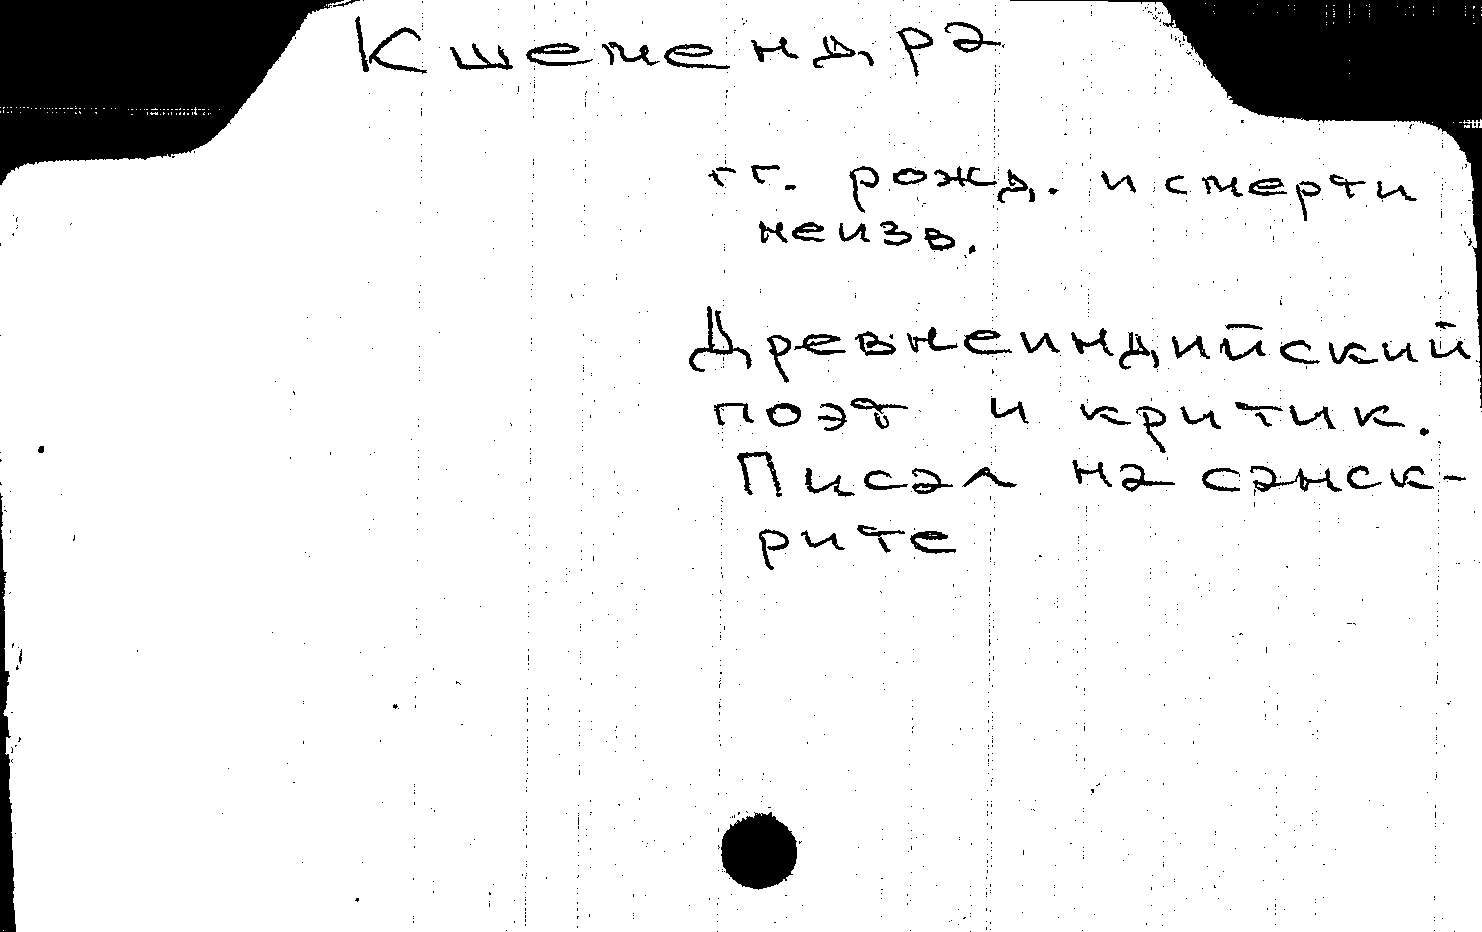 Кшемендра
гг. рожд. и смерти
неизв.
Древнеиндийский
поэт и критик.
Писал на санск-
рите